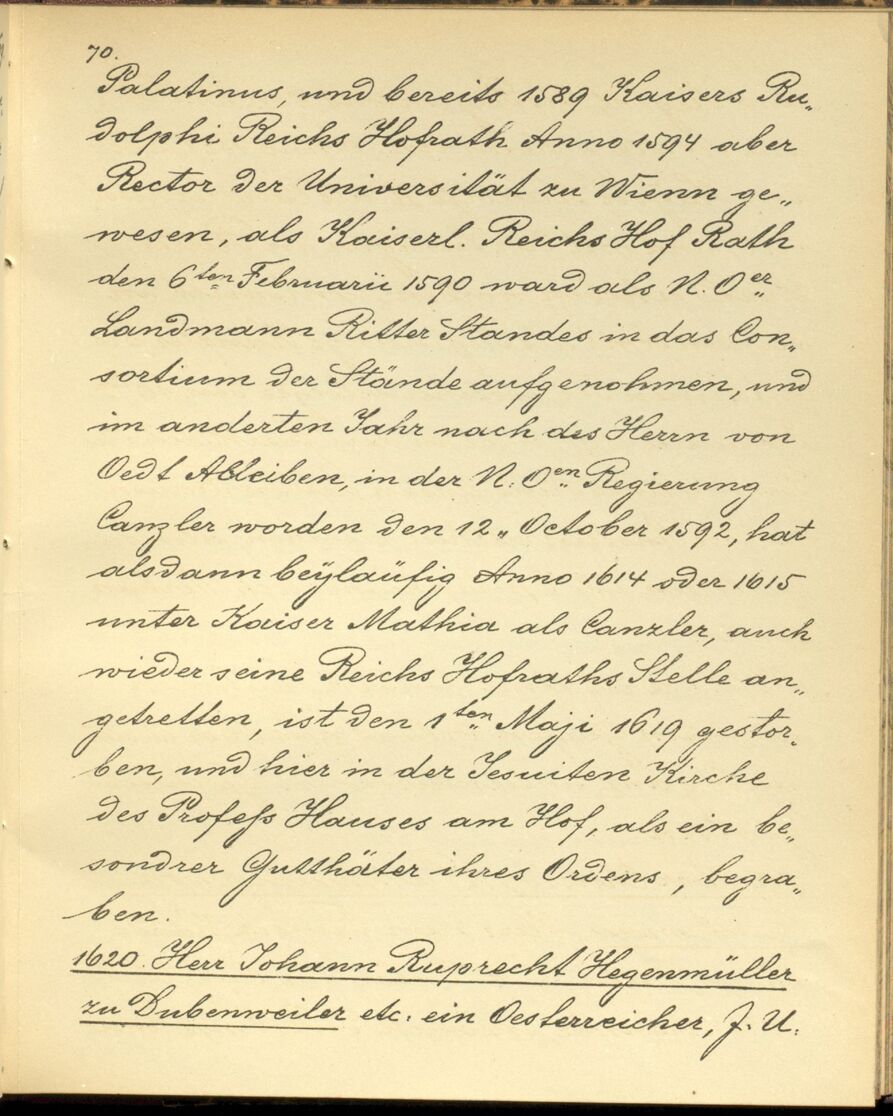 70.
Palatinus, und bereits 1589 Kaisers Ru„
dolphi Reichs Hofrath Anno 1594 aber
Rector der Universität zu Wienn ge„
wesen, als Kaiserl. Reichs Hof Rath
den 6ten Februarii 1590 ward als N. Oer
Landmann Ritter Standes in das Con„
sortium der Stände aufgenohmen, und
im anderten Jahr nach des Herrn von
Oedt Ableiben, in der N: Oen Regierung
Canzler worden den 12„ October 1592, hat
alsdann beÿlaüfig Anno 1614 oder 1615
unter Kaiser Mathia als Canzler, auch
wieder seine Reichs Hofraths Stelle an„
getretten, ist den 1ten Maji 1619 gestor„
ben, und hier in der Jesuiten Kirche
des Profeſs Hauses am Hof, als ein be„
sondrer Gutthäter ihres Ordens, begra„
ben.
1620. Herr Johann Ruprecht Hegenmüller
zu Dubenweiler etc: ein Oesterreicher, J. U.